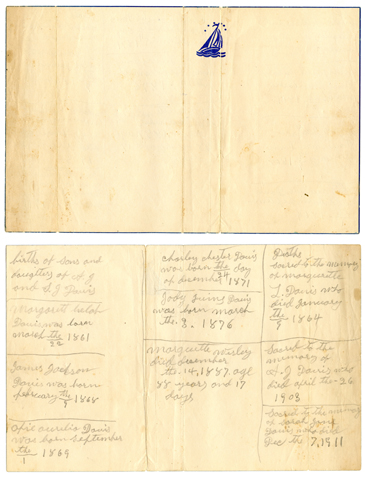 births of sons and
daughters of A J
and S J Davis
Margaret
Davis was born
March the 22 1861
James Jackson
Davis was born
February the 9 1868
aurelia Davis
was born September
the 1 1869
charley chester Davis
was born the 24 day
of december 1871
Jody Davis
was born march
the. 8. 1876
Marguette
died december
the. 14, 1887. age
38 years and 17
days
Deaths
sacred to the memory
of marguette
L Davis who
died January
the 9 1864
Sacred to the
memory of
A. J Davis who
died april the - 26
1908
Sacred to the memory
of sarah Jane
Davis who died
Dec the 7, 1911